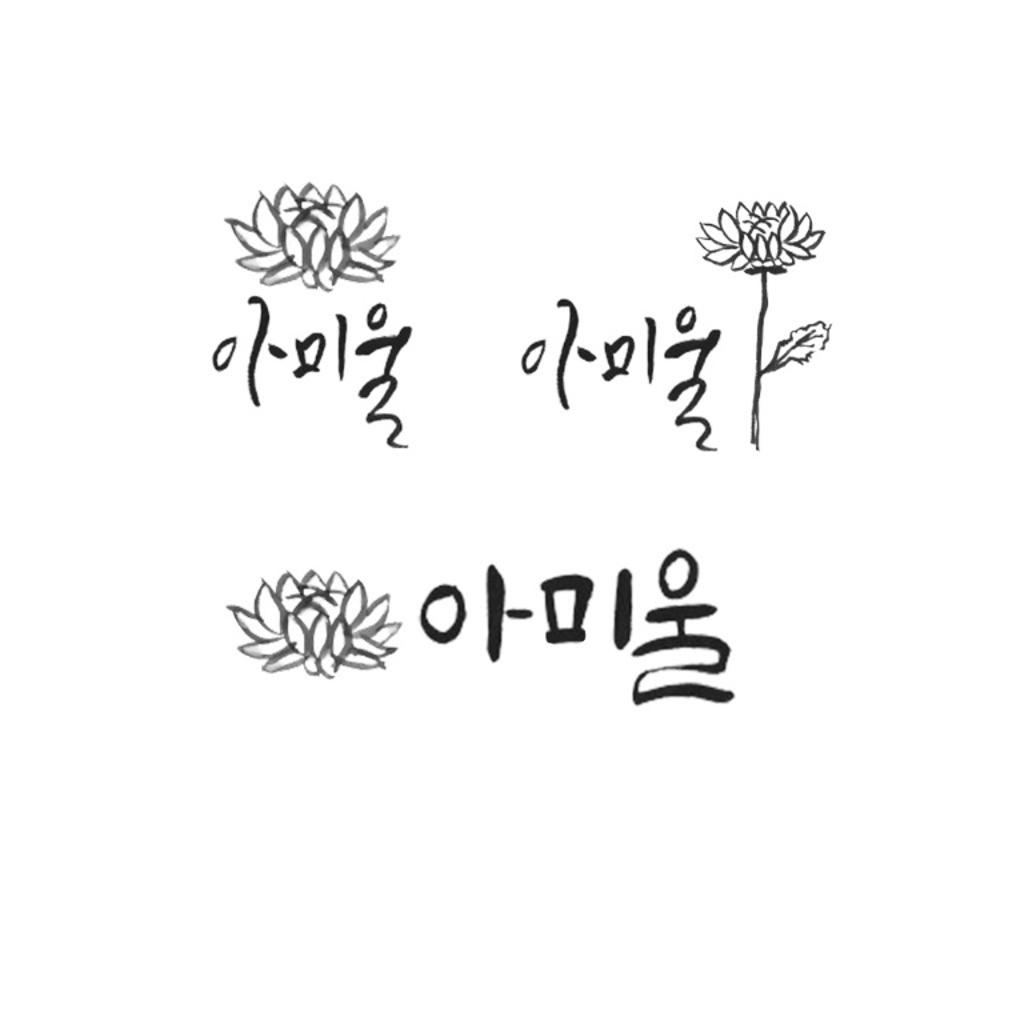 아미울
아미울
아미울